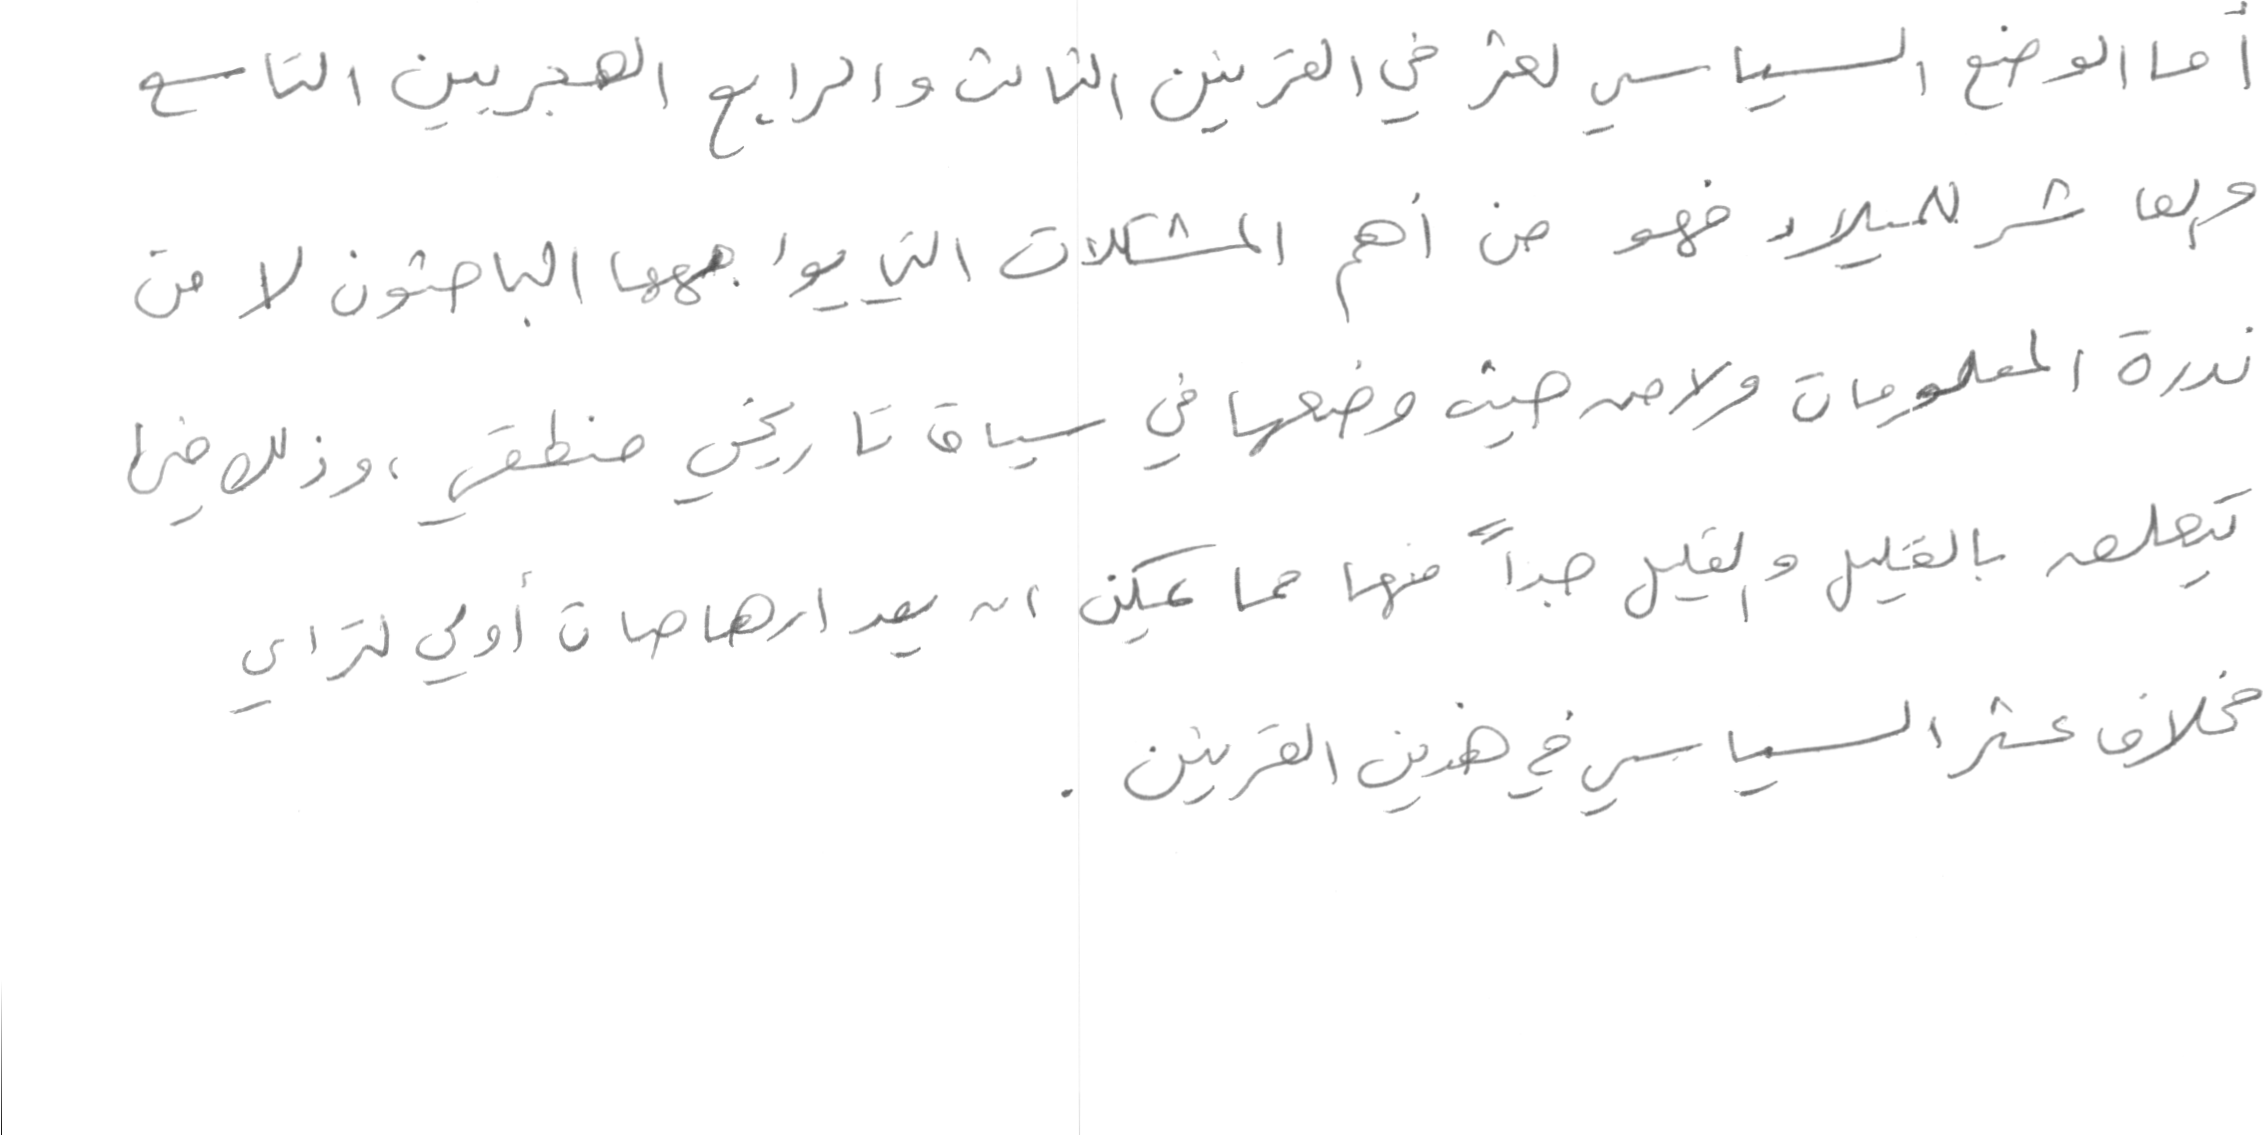 أما الوضع السياسي لعثر في القرنين الثالث والرابع الهجريين التاسع
والعاشر للميلاد فهو من أهم المشكلات التي يواجهها الباحثون لا من
ندرة المعلومات ولا من حيث وضعها في سياق تاريخي منطقي، وذلك فيما
يتعلق بالقليل والقليل جداً منها مما يمكن ان يعد ارهاصات أولى لتراي
مخلاف عثر السياسي في هذين القرنين .